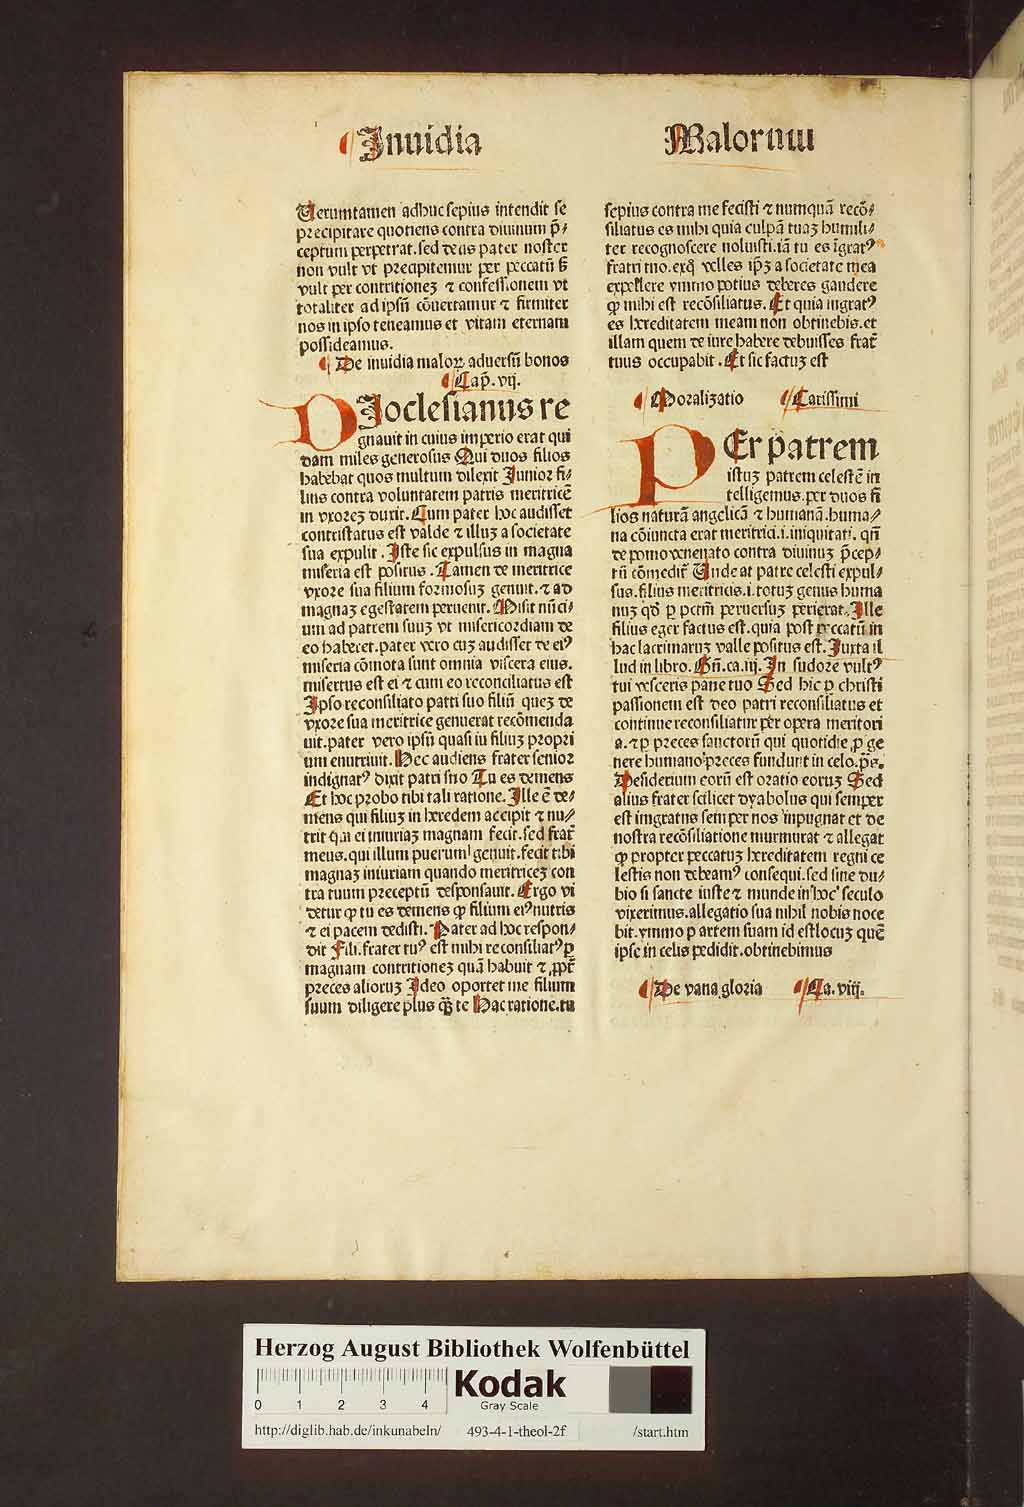 Inuidia
Malorum
Uerumtamen adhuc sepius intendit se
precipitare quotiens contra diuinum p̄-
ceptum perpetrat. sed deus pater noster
non vult vt precipitemur per peccatū sꝫ
vult per contritioneꝫ & confessionem vt
totaliter ad ipsū cōuertamur & firmiter
nos in ipso teneamus et vitam eternam
possideamus.
De inuidia maloꝝ aduersū bonos
Cap̄. vij.
DIoclesianus re
gnauit in cuius imperio erat qui
dam miles generosus Qui duos filios
habebat quos multum dilexit Junior fi-
lius contra voluntatem patris meritricē
in vxoreꝫ duxit. Cum pater hoc audisset
contristatus est valde & illuꝫ a societate
sua expulit. Iste sic expulsus in magna
miseria est positus. Tamen de meritrice
vxore sua filium formosuꝫ genuit. & ad
magnaꝫ egestatem peruenit. Misit nūci-
um ad patrem suuꝫ vt misericordiam de
eo haberet. pater vero cuꝫ audisset de eiꝰ
miseria cōmota sunt omnia viscera eius.
misertus est ei & cum eo reconciliatus est
Ipso reconsiliato patri suo filiū queꝫ de
vxore sua meritrice genuerat recōmenda
uit. pater vero ipsū quasi iu filiuꝫ propri
um enutriuit. Hec audiens frater senior
indignatꝰ dixit patri suo Tu es demens
Et hoc probo tibi tali ratione. Ille ē de-
mens qui filiuꝫ in heredem accipit & nu-
trit qui ei iniuriaꝫ magnam fecit. sed frat̄
meus. qui illum puerum genuit. fecit tibi
magnaꝫ iniuriam quando meritriceꝫ con
tra tuum preceptū desponsauit. Ergo vi
detur ꝙ tu es demens ꝙ filium eiꝰ nutris
& ei pacem dedisti. Pater ad hoc respon-
dit Fili. frater tuꝰ est mihi reconsiliatꝰ ꝑ
magnam contritioneꝫ quā habuit & ꝓpt̄
preces alioruꝫ Ideo oportet me filium
suum diligere plus ꝙ̄ te Hac ratione. tu
sepius contra me fecisti & numquā recō-
siliatus es mihi quia culpā tuaꝫ humili-
ter recognoscere noluisti. iā tu es īgratꝰ
fratri tuo. exq̊ velles ip̄ꝫ a societate mea
expellere ymmo potius deberes gaudere
ꝙ mihi est recōsiliatus. Et quia ingratꝰ
es hereditatem meam non obtinebis. et
illam quem de iure habere debuisses frat̄
tuus occupabit. Et sic factuꝫ est
Moralizatio Carissimi
PEr patrem
istuꝫ patrem celestē in
telligemus. per duos fi
lios naturā angelicā & humanā. huma-
na cōiuncta erat meritrici. i. iniquitati. qn̄
de pomo venenato contra diuinuꝫ p̄cep-
tū cōmedit̄ Unde at patre celesti expul-
sus. filius meritricis. i. totuꝫ genus huma
nuꝫ qd̄ ꝑ pctm̄ peruersuꝫ perierat. Ille
filius eger factus est. quia post peccatū in
hac lacrimaruꝫ valle positus est. Juxta il
lud in libro. Gn̄. ca. iij. In sudore vultꝰ
tui vesceris pane tuo Sed hic ꝑ christi
passionem est deo patri reconsiliatus et
continue reconsiliatur per opera meritori
a. & ꝑ preces sanctorū qui quotidie ꝓ ge
nere humano preces fundunt in celo. p̄s.
Desiderium eorū est oratio eoruꝫ Sed
alius frater scilicet dyabolus qui semper
est ingratus semper nos inpugnat et de
nostra recōsiliatione murmurat & allegat
ꝙ propter peccatuꝫ hereditatem regni ce
lestis non debeamꝰ consequi. sed sine du-
bio si sancte iuste & munde in hoc seculo
vixerimus. allegatio sua nihil nobis noce
bit. ymmo ꝑ artem suam id est locuꝫ quē
ipse in celis pedidit. obtinebimus
De vana gloria Ca. viij.
Herzog August Bibliothek Wolfenbüttel
0 1 2 3 4
Kodak
Gray Scale
http://diglib.hab.de/inkunabeln/ 493-4-1-theol-2f /start.htm